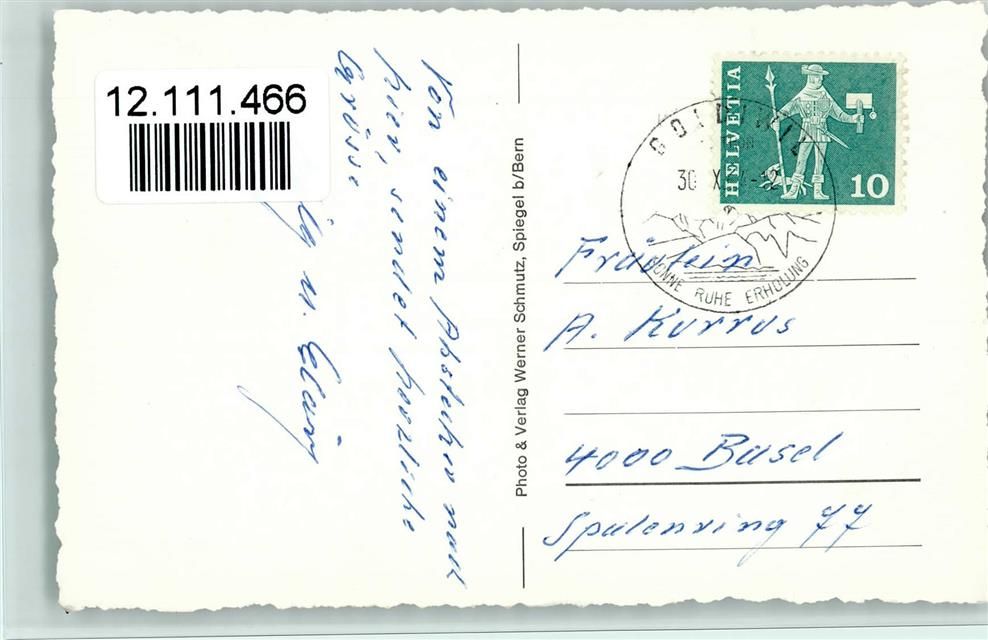 12.111.466
Von einem Abstecher nach
hier, sendet herzliche
Grüsse
u.
Photo & Verlag Werner Schmutz, Spiegel b/Bern
HELVETIA
10
GOLDIWIL
30. X
-12
SONNE RUHE ERHOLUNG
Fräulein
A. Kurrus
4000 Basel
Spalenring 77